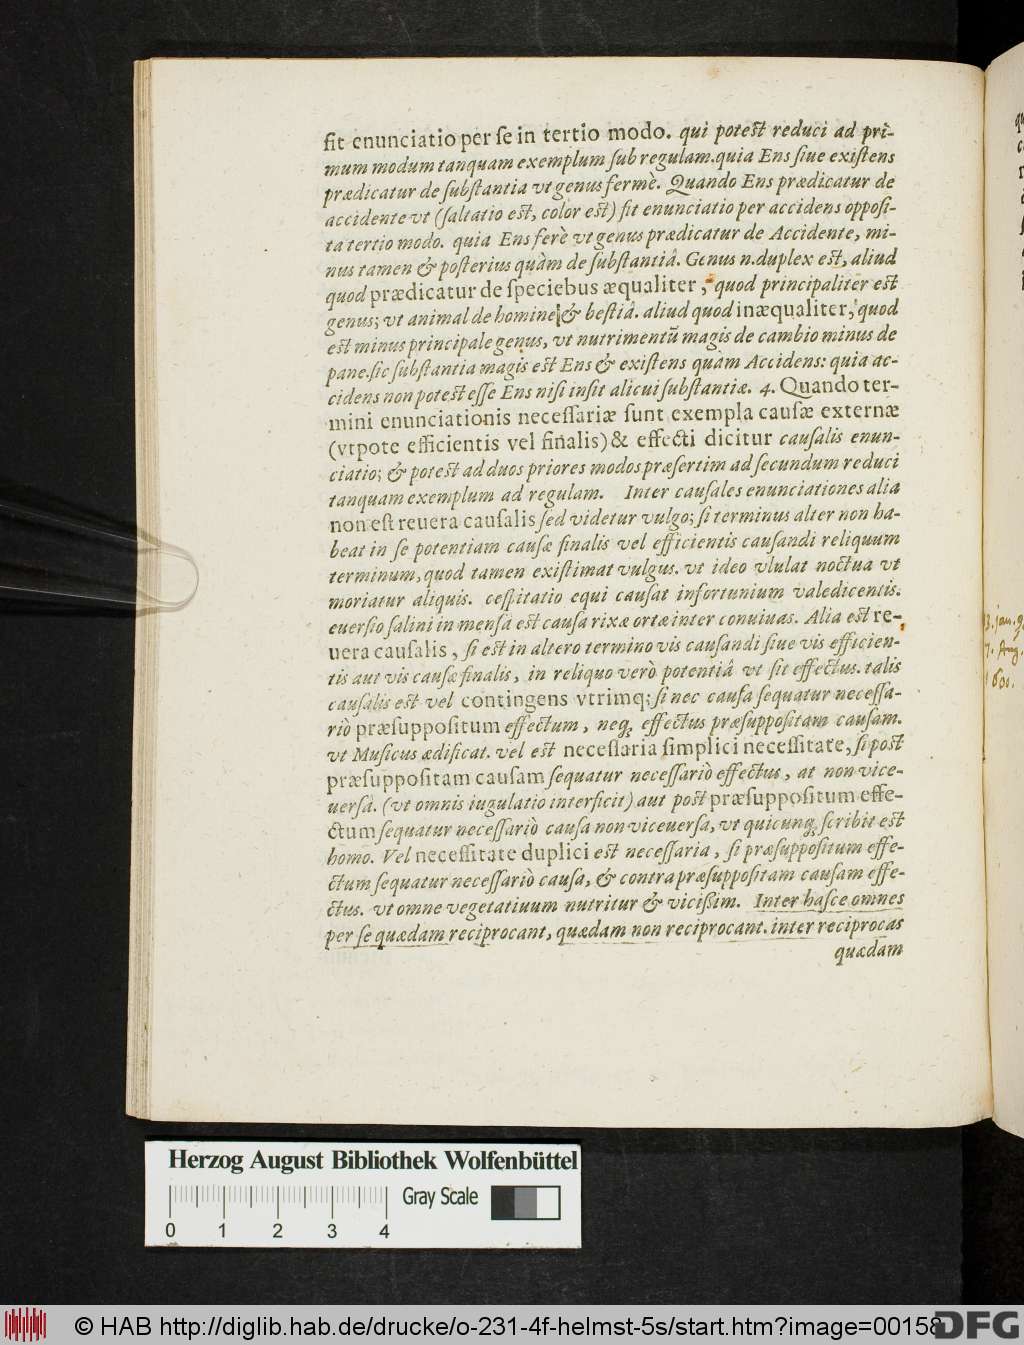 fit enunciatio per ſe in tertio modo. qui poteſt reduci ad pri-
mum modum tanquam exemplum ſub regulam. quia Ens ſiue exiſtens
prædicatur de ſubſtantia vt genus fermè. Quando Ens prædicatur de
accidente vt (ſaltatio eſt, color eſt) fit enunciatio per accidens oppoſi-
ta tertio modo. quia Ens ferè vt genus prædicatur de Accidente, mi-
nus tamen & poſterius quàm de ſubſtantiâ. Genus n. duplex eſt, aliud
quod prædicatur de ſpeciebus æqualiter, quod principaliter eſt
genus; vt animal de homine & beſtiâ. aliud quod inæqualiter, quod
eſt minus principale genus, vt nutrimentũ magis de cambio minus de
pane. ſic ſubſtantia magis eſt Ens & exiſtens quàm Accidens: quia ac-
cidens non poteſt eſſe Ens niſi inſit alicui ſubſtantiæ. 4. Quando ter-
mini enunciationis neceſſariæ ſunt exempla cauſæ externæ
(vtpote efficientis vel finalis) & effecti dicitur cauſalis enun-
ciatio; & poteſt ad duos priores modos præſertim ad ſecundum reduci
tanquam exemplum ad regulam. Inter cauſales enunciationes alia
non eſt reuera cauſalis ſed videtur vulgo; ſi terminus alter non ha-
beat in ſe potentiam cauſæ finalis vel efficientis cauſandi reliquum
terminum, quod tamen exiſtimat vulgus. vt ideo vlulat noctua vt
moriatur aliquis. ceſpitatio equi cauſat infortunium valedicentis.
euerſio ſalini in menſa eſt cauſa rixæ ortæ inter conuiuas. Alia eſt re-
uera cauſalis, ſi eſt in altero termino vis cauſandi ſiue vis efficien-
tis aut vis cauſæ finalis, in reliquo verò potentiâ vt ſit effectus. talis
cauſalis eſt vel contingens vtrimq;; ſi nec cauſa ſequatur neceſſa-
riò præſuppoſitum effectum, neq; effectus præſuppoſitam cauſam.
vt Muſicus ædificat. vel eſt neceſſaria ſimplici neceſſitate, ſi poſt
præſuppoſitam cauſam ſequatur neceſſariò effectus, at non vice-
uerſâ. (vt omnis iugulatio interficit) aut poſt præſuppoſitum effe-
ctum ſequatur neceſſariò cauſa non viceuerſa, vt quicunq; ſcribit eſt
homo. Vel neceſſitate duplici eſt neceſſaria, ſi præſuppoſitum effe-
ctum ſequatur neceſſariò cauſa, & contra præſuppoſitam cauſam effe-
ctus. vt omne vegetatiuum nutritur & viciſſim. Inter haſce omnes
per ſe quædam reciprocant, quædam non reciprocant. inter reciprocas
quædam
7. Aug.
1601.
Herzog August Bibliothek Wolfenbüttel
Gray Scale
0 1 2 3 4
© HAB http://diglib.hab.de/drucke/o-231-4f-helmst-5s/start.htm?image=00158
DFG